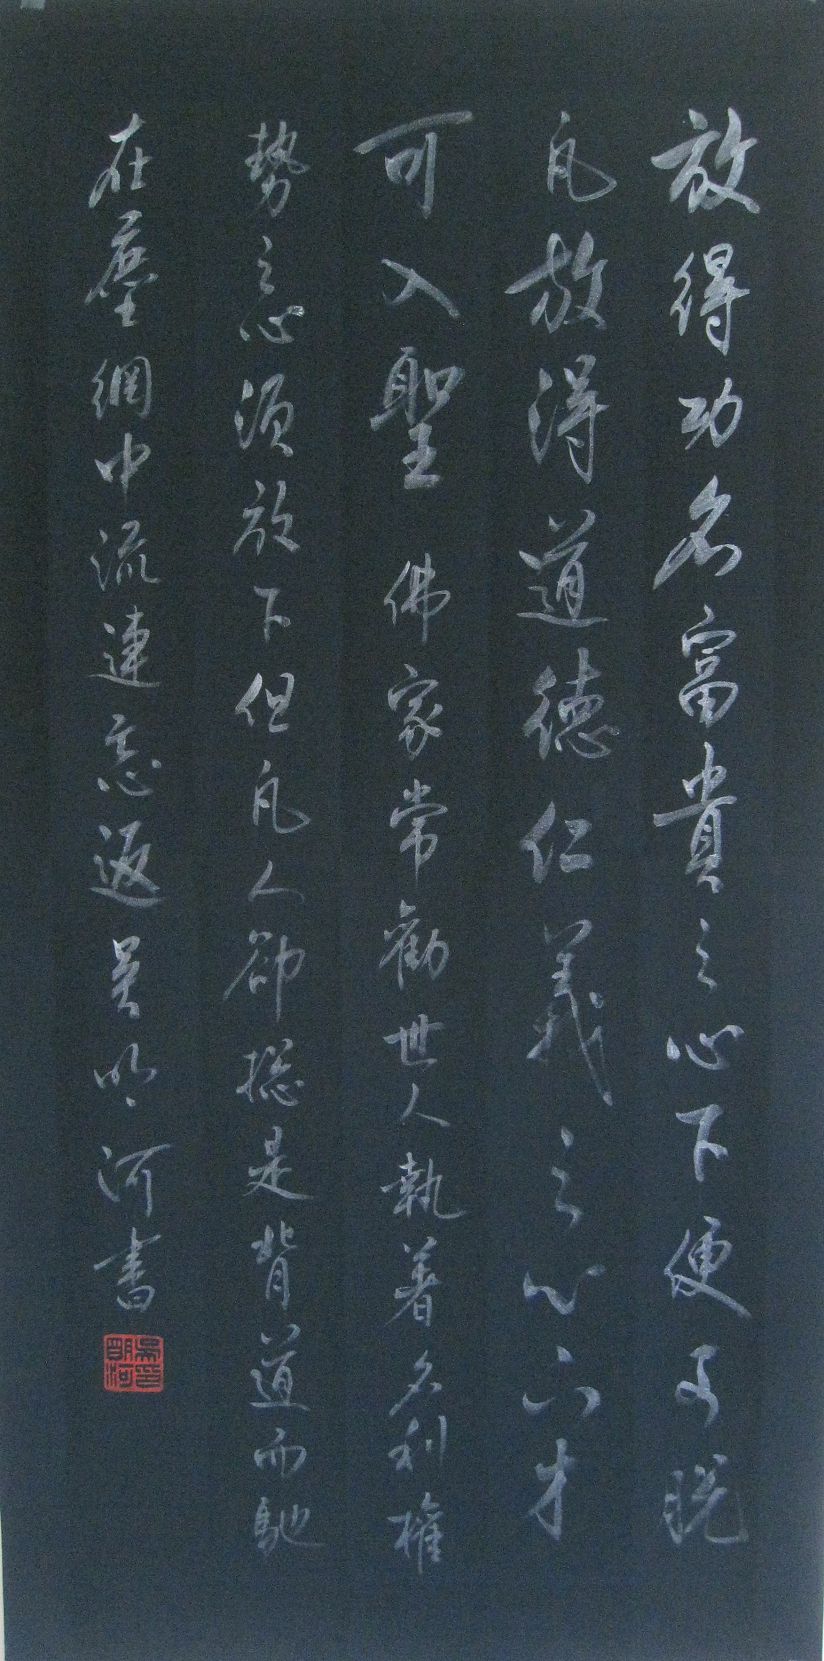 放得功名富貴之心下便可脫
凡放得道德仁義之心下才
可入聖 佛家常勸世人執著名利權
勢之心須放下但凡人卻總是背道而馳
在塵網中流連忘返吳明河書
吳明河印